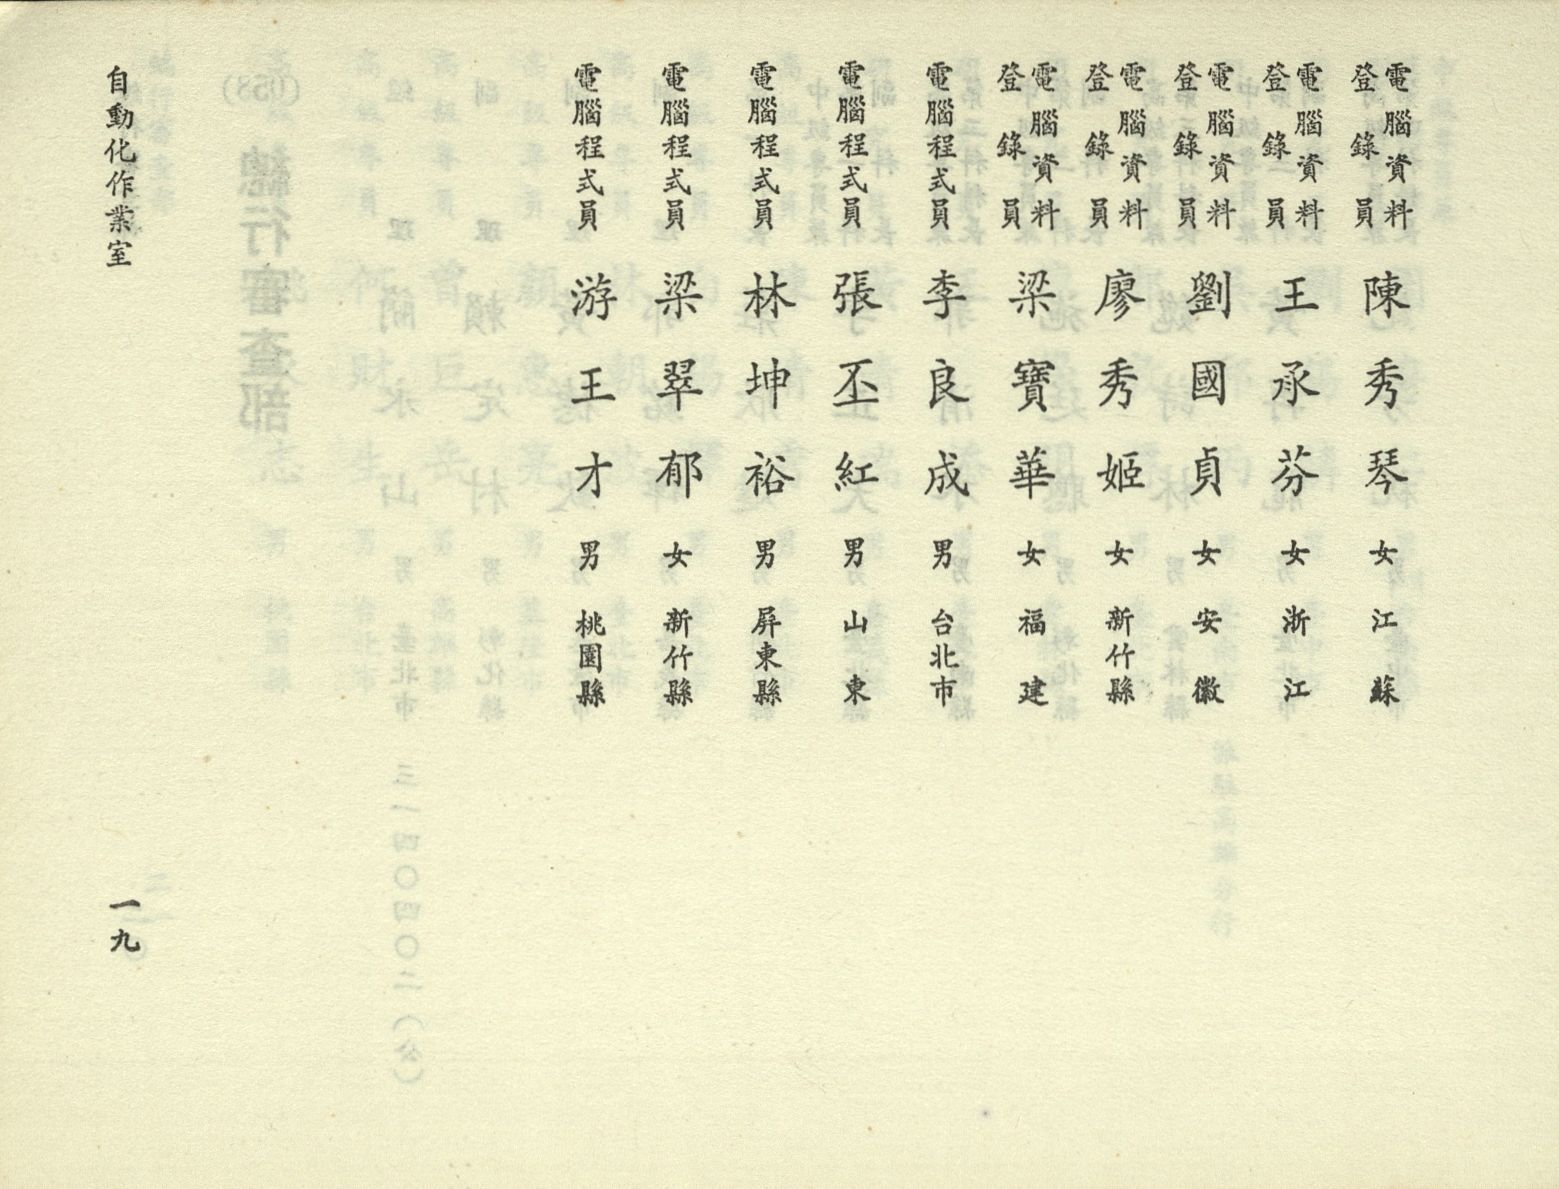 電腦資料登錄員 陳秀琴 女 江蘇
電腦資料登錄員 王承芬 女 浙江
電腦資料登錄員 劉國貞 女 安徽
電腦資料登錄員 廖秀姬 女 新竹縣
電腦資料登錄員 梁寶華 女 福建
電腦程式員 李良成 男 台北市
電腦程式員 張丕紅 男 山東
電腦程式員 林坤裕 男 屏東縣
電腦程式員 梁翠郁 女 新竹縣
電腦程式員 游王才 男 桃園縣
自動化作業室 一九